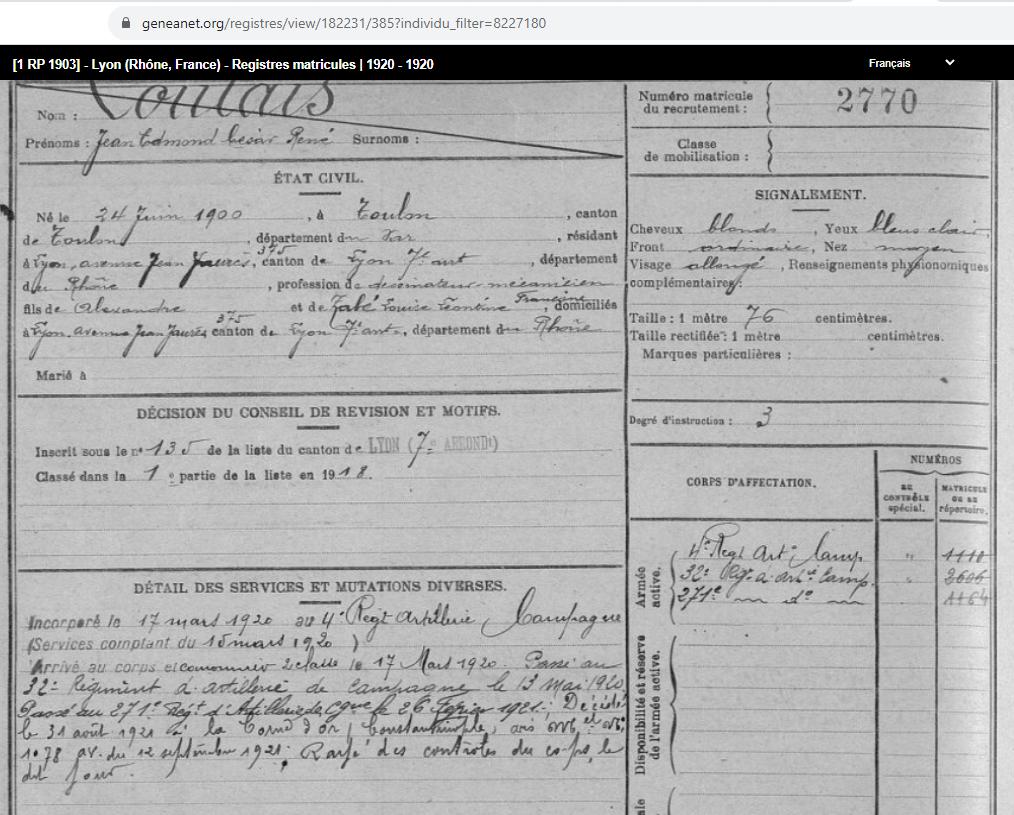 geneanet.org/registres/view/182231/385?individu_filter=8227180
[1 RP 1903] - Lyon (Rhône, France) - Registres matricules | 1920 - 1920
Français
Nom :
Prénoms : Jean Edmond César René Surnoms :
ÉTAT CIVIL.
Né le 24 Juin 1900, à Toulon, canton
de Toulon, département du Var, résidant
à Lyon, avenue Jean Jaurès, 375 canton de Lyon 7e arrt, département
du Rhône, profession de dessinateur mécanicien
fils de Alexandre et de Fabé Louise Léontine Francine, domiciliés
à Lyon, avenue Jean Jaurès 375 canton de Lyon 7e arrt, département du Rhône
Marié à
DÉCISION DU CONSEIL DE REVISION ET MOTIFS.
Inscrit sous le n° 135 de la liste du canton de LYON (7e ARRONDt)
Classé dans la 1e partie de la liste en 1918.
DÉTAIL DES SERVICES ET MUTATIONS DIVERSES.
Incorporé le 17 mars 1920 au 4e Regt Artillerie Campagne
(Services comptant du 15 mars 1920)
Arrivé au corps et canonnier 2e classe le 17 Mars 1920. Passé au
32e Régiment d'artillerie de campagne le 13 Mai 1920
Passé au 271e Régt d'Artillerie de Cgne le 26 Février 1921. Décédé
le 31 août 1921 à la Corne d'or (Constantinople, avis
1078 av. du 12 septembre 1921. Rayé des contrôles du corps le
dit jour.
Numéro matricule du recrutement : 2770
Classe de mobilisation :
SIGNALEMENT.
Cheveux blonds, Yeux bleus clair,
Front ordinaire, Nez moyen
Visage allongé, Renseignements physionomiques
complémentaires:
Taille : 1 mètre 76 centimètres.
Taille rectifiée : 1 mètre centimètres.
Marques particulières :
Degré d'instruction : 3
CORPS D'AFFECTATION.
NUMÉROS
AU CONTRÔLE spécial.
MATRICULE OU AU répertoire.
Armée active.
4e Regt Artie Camp " 1110
32e Rég. d'artie Camp. " 2606
271e — do — 1164
Disponibilité et réserve de l'armée active.